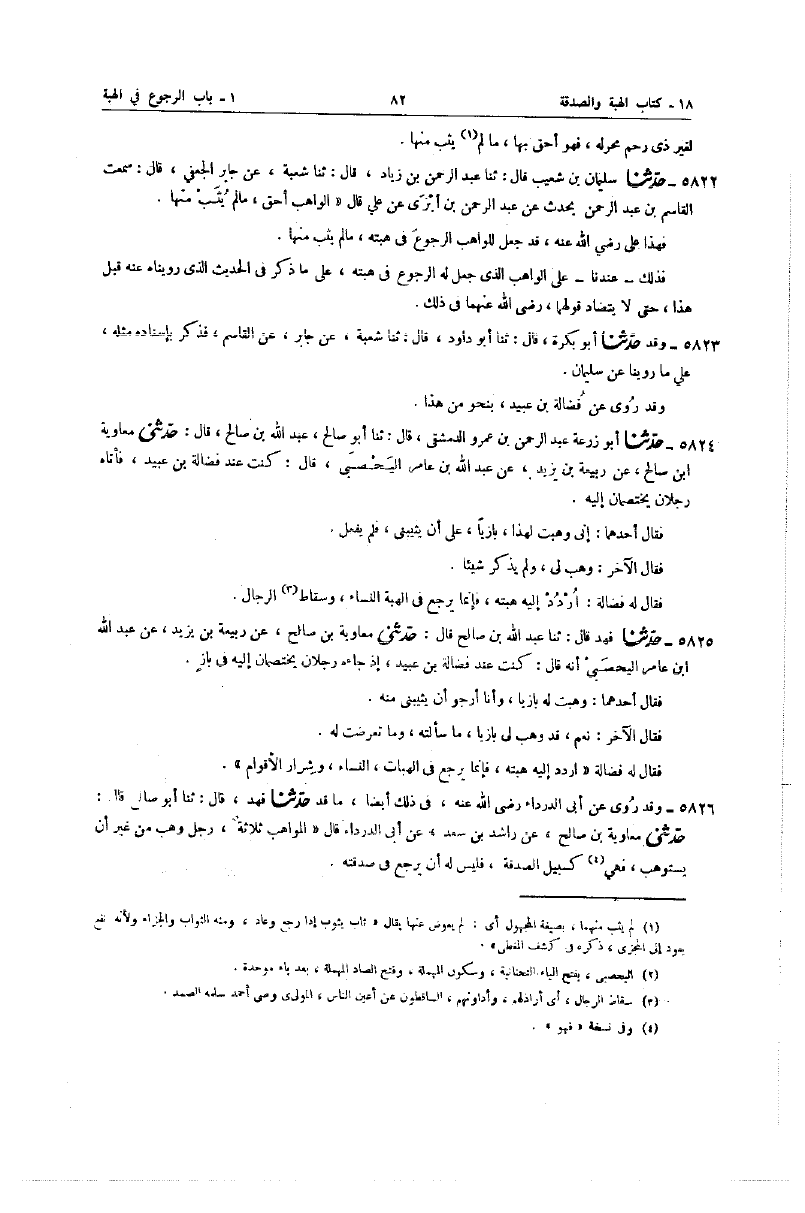 ١٨ - كتاب الهبة والصدقة ٨٢ ١ - باب الرجوع في الهبة
لغير ذى رحم محرله ، فهو أحق بها ، ما لم(١) يثب منها .
٥٨٢٢ - حدثنا سليمان بن شعيب قال : ثنا عبد الرحمن بن زياد ، قال : ثنا شعبة ، عن جابر الجعفي ، قال : سمعت
القاسم بن عبد الرحمن يحدث عن عبد الرحمن بن أبْزَى عن علي قال « الواهب أحق ، مالم يُثَبْ منها .
فهذا على رضي الله عنه ، قد جعل للواهب الرجوعَ فى هبته ، مالم يثب منها .
فذلك - عندنا - على الواهب الذى جعل له الرجوع فى هبته ، على ما ذكر فى الحديث الذى رويناه عنه قبل
هذا ، حتى لا يتضاد قولهما ، رضي الله عنهما فى ذلك .
٥٨٢٣ - وقد حدَّثنا أبو بكرة ، قال : ثنا أبو داود ، قال : ثنا شعبة ، عن جابر ، عن القاسم ، فذكر بإسناده مثله ،
على ما روينا عن سليمان .
وقد رُوى عن فُضالة بن عبيد ، بنحو من هذا .
٥٨٢٤ - حدَّثنا أبو زرعة عبد الرحمن بن عمرو الدمشقى ، قال : ثنا أبو صالح ، عبد الله بن صالح ، قال : حدَّثنى معاوية
ابن صالح ، عن ربيعة بن يزيد ، عن عبد الله بن عامر اليَحْصَبى ، قال : كنت عند فضالة بن عبيد ، فأتاه
رجلان يختصمان إليه .
فقال أحدهما : إنى وهبت لهذا ، بازياً ، على أن يثيبنى ، فلم يفعل .
فقال الآخر : وهب لى ، ولم يذكر شيئا .
فقال له فضالة : اُرْدُدْ إليه هبته ، فإنما يرجع فى الهبة النساء ، وسقاط(٣) الرجال .
٥٨٢٥ - حدَّثنا فهد قال : ثنا عبد الله بن صالح قال : حدَّثنى معاوية بن صالح ، عن ربيعة بن يزيد ، عن عبد الله
ابن عامر اليحصَبىْ أنه قال : كنت عند فضالة بن عبيد ، إذ جاءه رجلان يختصمان إليه فى بازٍ .
فقال أحدهما : وهبت له بازيا ، وأنا أرجو أن يثيبنى منه .
فقال الآخر : نعم ، قد وهب لى بازيا ، ما سألته ، وما تعرضت له .
فقال له فضالة « اردد إليه هبته ، فإنما يرجع فى الهبات ، النساء ، وشرار الأقوام » .
٥٨٢٦ - وقد رُوى عن أبى الدرداء رضى الله عنه ، فى ذلك أيضا ، ما قد حدَّثنا فهد ، قال : ثنا أبو صالح قال :
حدَّثنى معاوية بن صالح ، عن راشد بن سعد ، عن أبى الدرداء قال « المواهب ثلاثة ، رجل وهب من غير أن
يستوهب ، فهي(٤) كسبيل الصدقة ، فليس له أن يرجع فى صدقته
(١) لم يثب منهما ، بصيغة المجهول أى : لم يعوض عنها يقال « ثاب يثوب إذا رجع وعاد ، ومنه الثواب والجزاء ولأنه نفع
يعود إلى المجزى ، ذكره فى كشف المغطى » .
(٢) اليحصبى ، بفتح الياء التحتانية ، وسكون المهملة ، وفتح الصاد المهملة ، بعد باء موحدة .
(٣) سقاط الرجال ، أى أراذلهم ، وأداونهم ، الساقطون عن أعين الناس ، المولوى وصى أحمد سلمه الصمد .
(٤) وفى نسخة « فهو » .